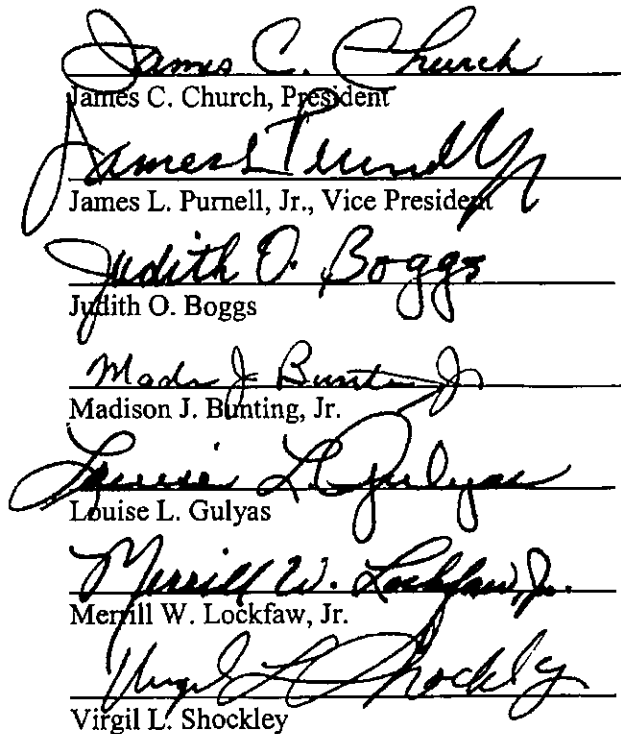 James C. Church
James C. Church, President
James L Purnell Jr
James L. Purnell, Jr., Vice President
Judith O. Boggs
Judith O. Boggs
Madison J. Bunting, Jr.
Louise L. Gulyas
Louise L. Gulyas
Merrill W. Lockfaw, Jr.
Merrill W. Lockfaw, Jr.
Virgil L Shockley
Virgil L. Shockley